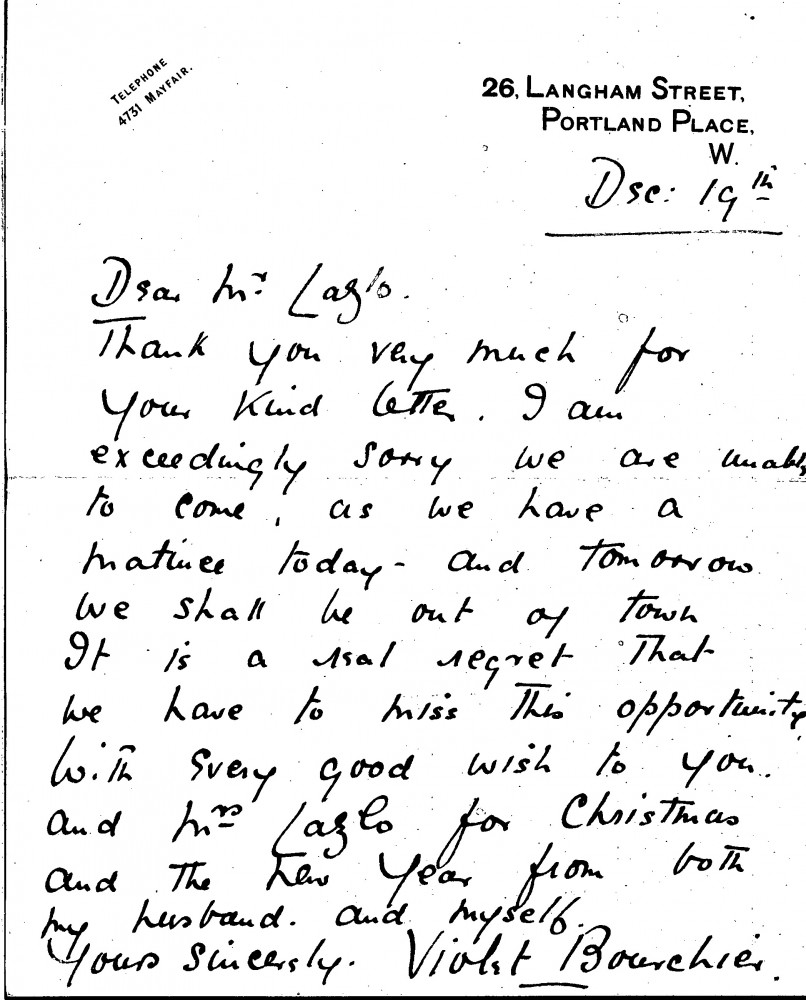 TELEPHONE
4731 MAYFAIR.
26, LANGHAM STREET,
PORTLAND PLACE,
W.
Dec: 19th
Dear Mr. Lazlo.
Thank you very much for
your kind letter. I am
exceedingly sorry we are unable
to come, as we have a
matinee today - and tomorrow
we shall be out of town
It is a real regret that
we have to miss this opportunity
With every good wish to you.
and Mrs Lazlo for Christmas
and the New Year from both
my husband. and myself.
Yours sincerely. Violet Bourchier.